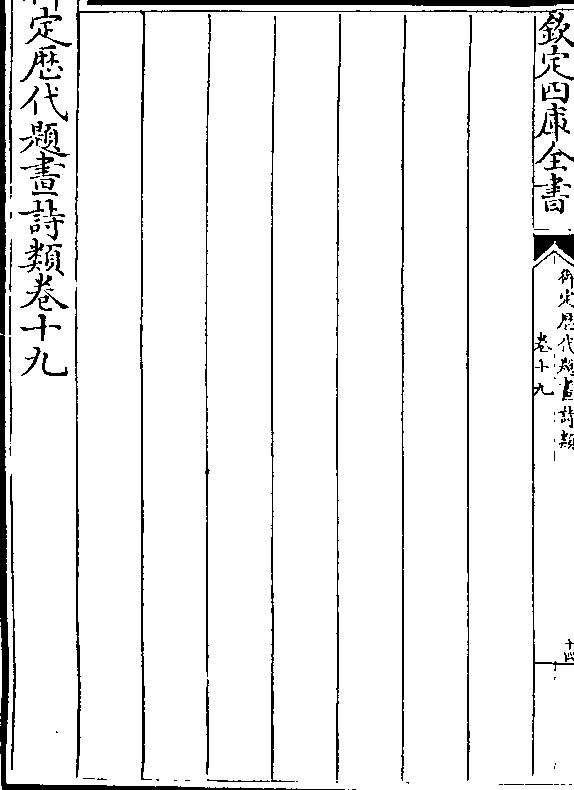 欽定四庫全書
御定歴代題畫詩類
卷十九
十四
御定歴代題畫詩類卷十九